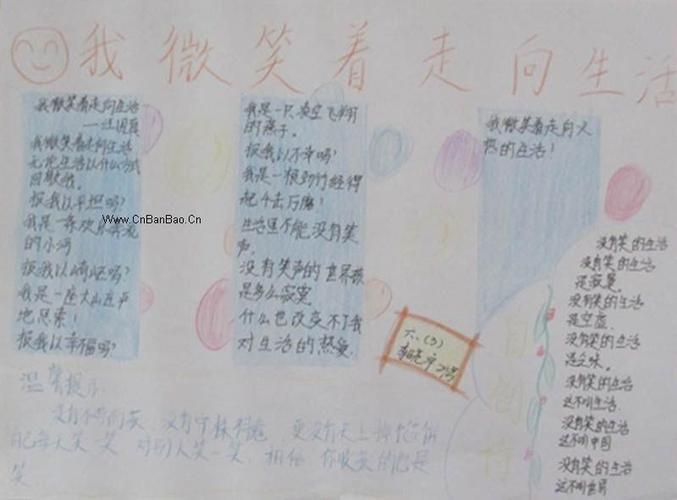 我微笑着走向生活
我微笑着走向生活
——汪国真
我微笑着走向生活
无论生活以什么方式
回敬我。
报我以平坦吗?
我是一条欢乐奔流
的小河
报我以崎岖吗?
我是一座大山庄严
地思索!
报我以幸福吗?
我是一只凌空飞翔
的燕子。
报我以不幸吗?
我是一根劲竹经得
起千击万磨!
生活里不能没有笑
声,
没有笑声的世界该
是多么寂寞
什么也改变不了我
对生活的热爱,
我微笑着走向火
热的生活!
www.CnBanBao.Cn
六、(3)
没有笑的生活
没有笑的生活
是寂寞
没有笑的生活
是空虚
没有笑的生活
是乏味。
没有笑的生活
这不叫生活
没有笑的生活
这不叫中国
没有笑的生活
这不叫世界
温馨提示:
没有不劳而获,没有守株待兔,更没有天上掉馅饼
自己每天笑一笑,对别人笑一笑,相信,你收获的也是
笑。